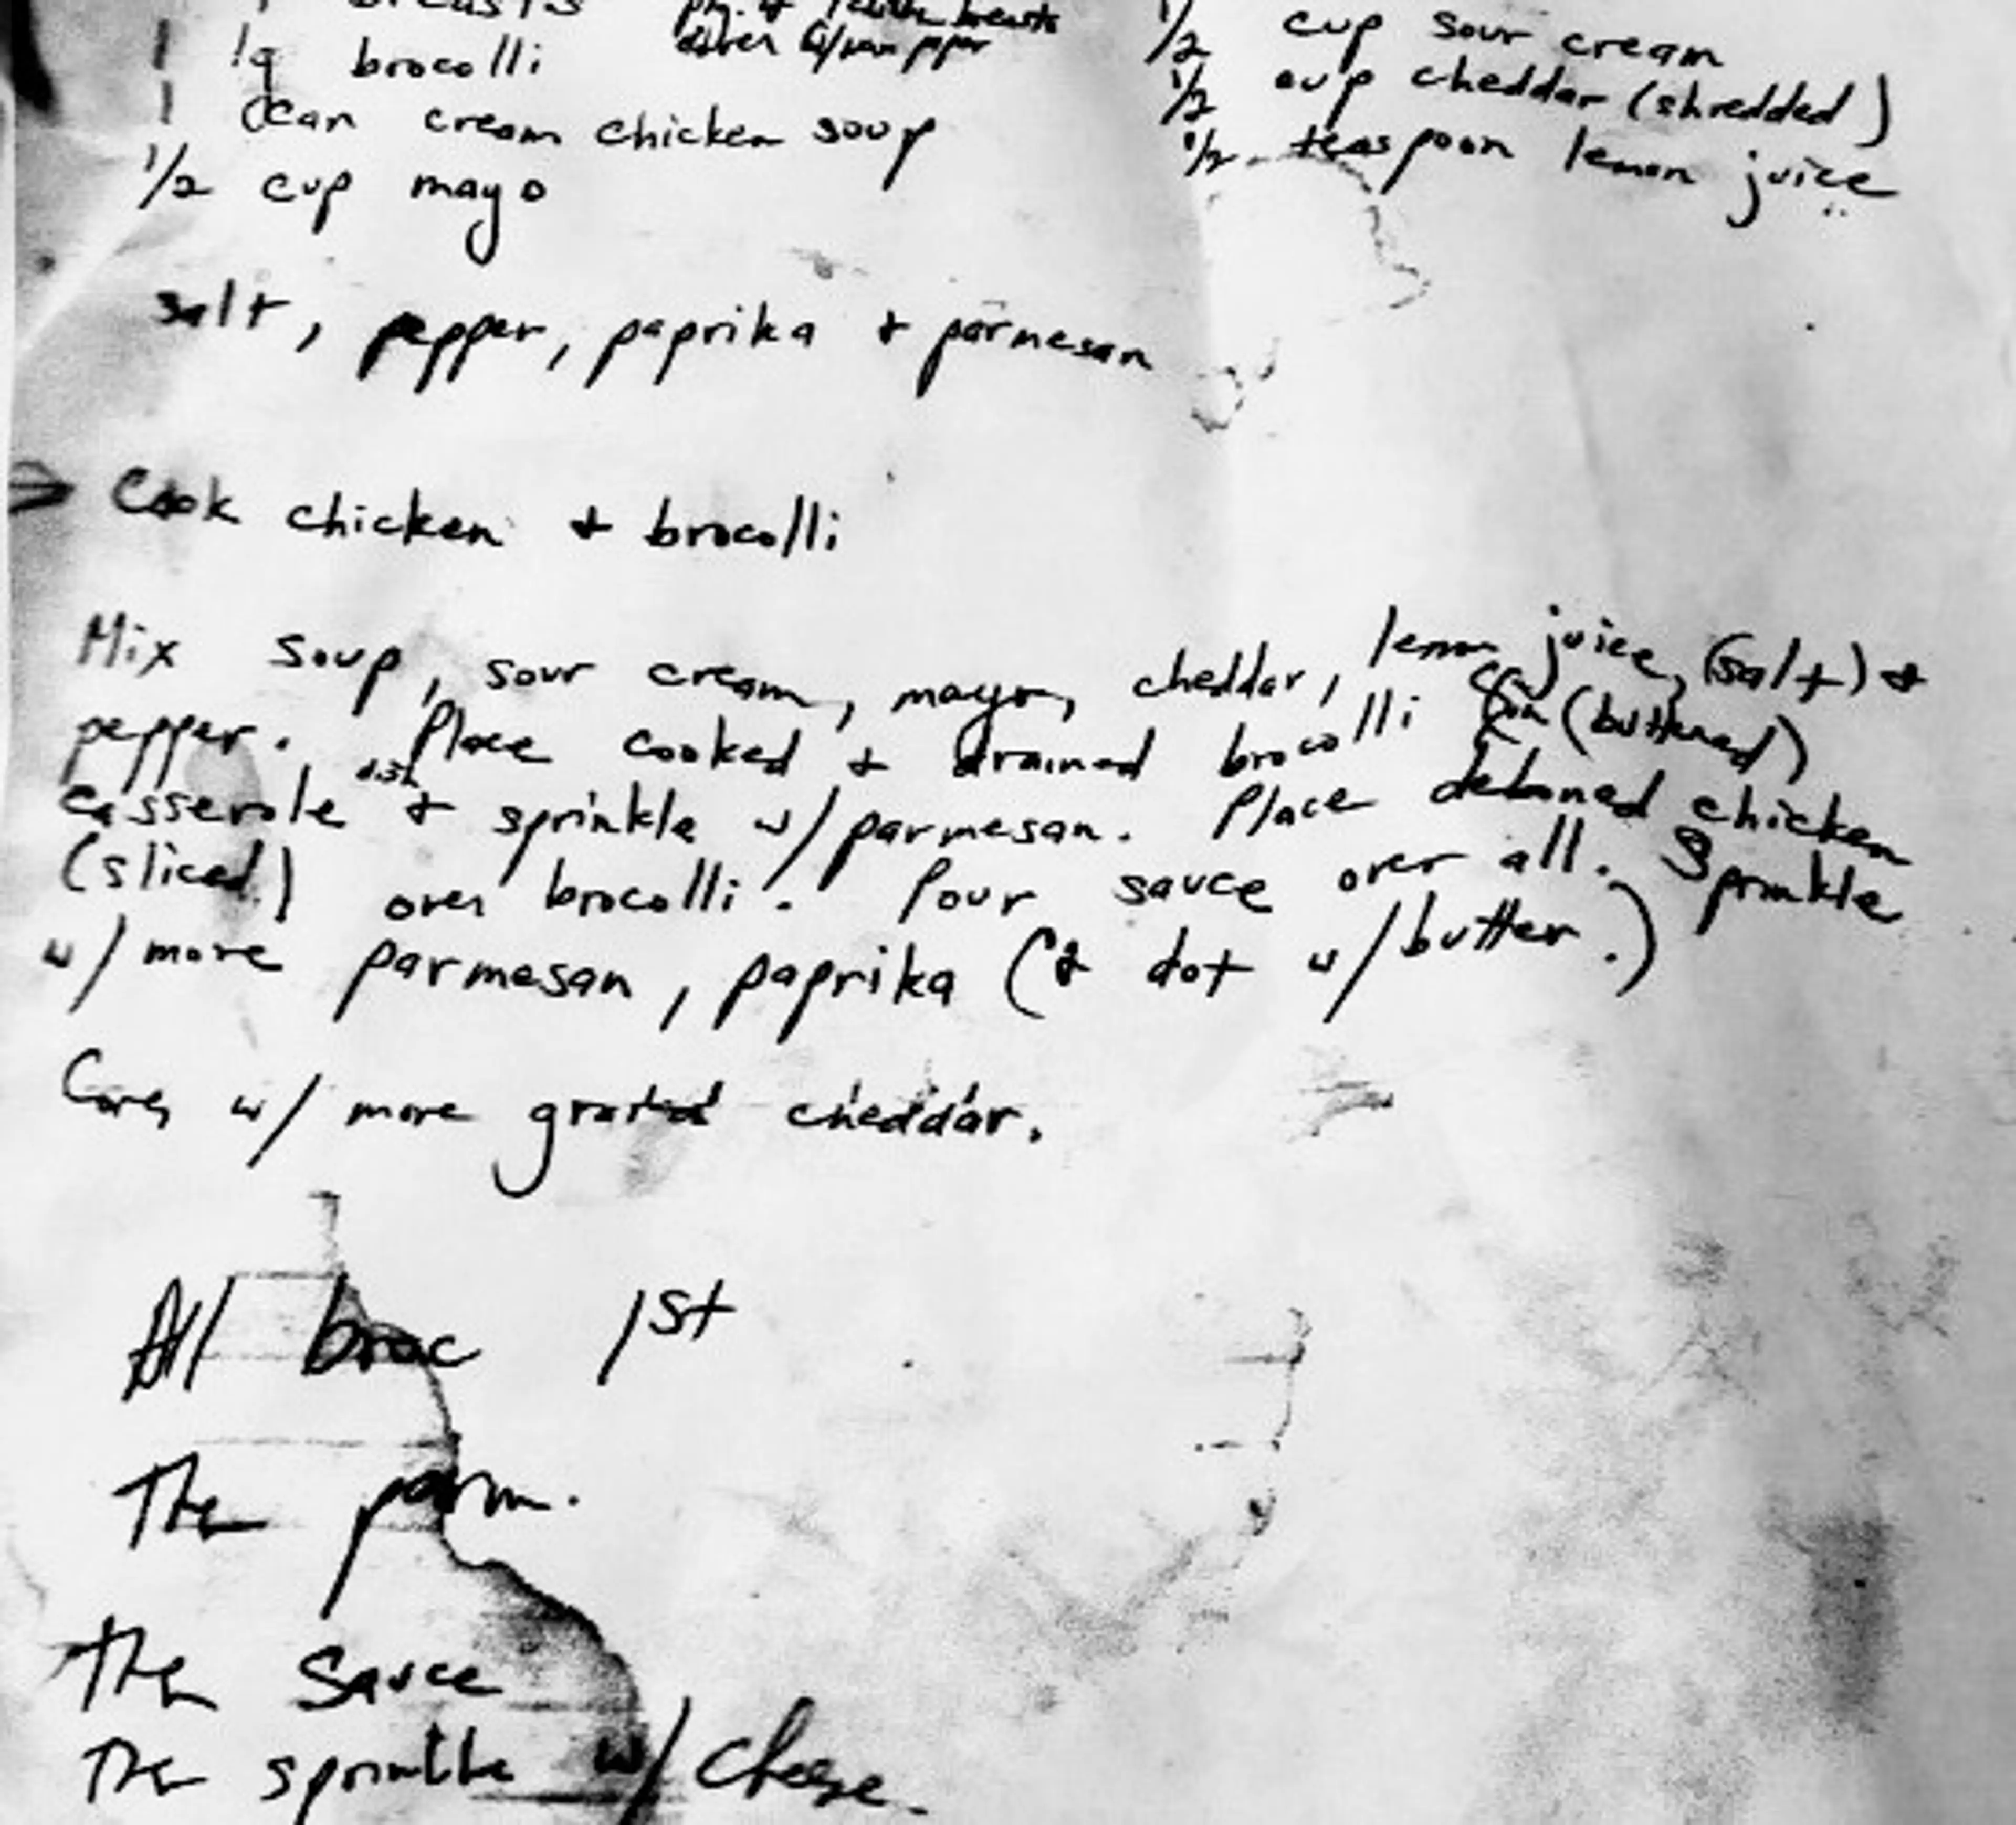 breasts
breasts
1 lg brocolli
1 can cream chicken soup
1/2 cup mayo
1/2 cup sour cream
1/2 cup cheddar (shredded)
1/2 teaspoon lemon juice
salt, pepper, paprika + parmesan
Cook chicken + brocolli
Mix soup, sour cream, mayo, cheddar, lemon juice, (salt) +
pepper. Place cooked + drained brocolli in (buttered)
casserole dish + sprinkle w/ parmesan. Place deboned chicken
(sliced) over brocolli. Pour sauce over all. Sprinkle
w/ more parmesan, paprika (& dot w/ butter.)
Cover w/ more grated cheddar.
All broc 1st
Then parm.
Then sauce
Then sprinkle w/ cheese.